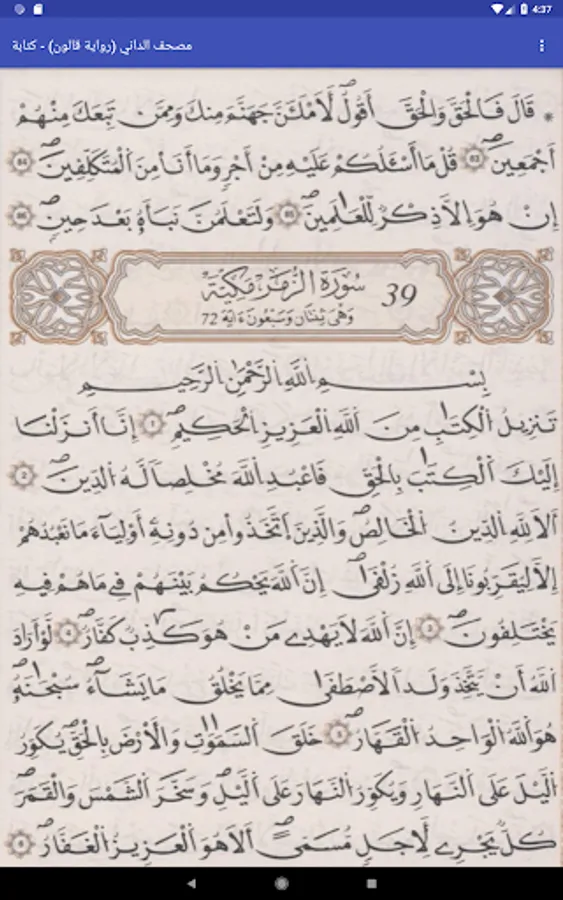 4:37
مصحف الداني (رواية قالون) - كتابة
قَالَ فَالْحَقَّ وَالْحَقَّ أَقُولُ لَأَمْلَأَنَّ جَهَنَّمَ مِنكَ وَمِمَّن تَبِعَكَ مِنْهُمْ
أَجْمَعِينَ 83 قُلْ مَا أَسْـَٔلُكُمْ عَلَيْهِ مِنْ أَجْرٍ وَمَا أَنَا مِنَ الْمُتَكَلِّفِينَ 84
إِنْ هُوَ إِلَّا ذِكْرٌ لِّلْعَٰلَمِينَ 85 وَلَتَعْلَمُنَّ نَبَأَهُۥ بَعْدَ حِينٍ 86
39 سُورَةُ الزُّمَرِ مَكِّيَّة
وَهْيَ ثِنْتَانِ وَسَبْعُونَ ءَايَةً 72
بِسْمِ اللَّهِ الرَّحْمَٰنِ الرَّحِيمِ
تَنزِيلُ الْكِتَٰبِ مِنَ اللَّهِ الْعَزِيزِ الْحَكِيمِ 1 إِنَّا أَنزَلْنَا
إِلَيْكَ الْكِتَٰبَ بِالْحَقِّ فَاعْبُدِ اللَّهَ مُخْلِصاً لَّهُ الدِّينَ 2
أَلَا لِلَّهِ الدِّينُ الْخَالِصُ وَالَّذِينَ اَتَّخَذُوا مِن دُونِهِۦ أَوْلِيَآءَ مَا نَعْبُدُهُمْ
إِلَّا لِيُقَرِّبُونَا إِلَى اللَّهِ زُلْفَىٰ إِنَّ اللَّهَ يَحْكُمُ بَيْنَهُمْ فِي مَا هُمْ فِيهِ
يَخْتَلِفُونَ 3 إِنَّ اللَّهَ لَا يَهْدِي مَنْ هُوَ كَٰذِبٌ كَفَّارٌ 4 لَّوْ أَرَادَ
اللَّهُ أَنْ يَّتَّخِذَ وَلَداً لَّاصْطَفَىٰ مِمَّا يَخْلُقُ مَا يَشَآءُ سُبْحَٰنَهُۥ
هُوَ اللَّهُ الْوَاحِدُ الْقَهَّارُ 5 خَلَقَ السَّمَٰوَٰتِ وَالْأَرْضَ بِالْحَقِّ يُكَوِّرُ
الَّيْلَ عَلَى النَّهَارِ وَيُكَوِّرُ النَّهَارَ عَلَى الَّيْلِ وَسَخَّرَ الشَّمْسَ وَالْقَمَرَ
كُلٌّ يَجْرِي لِأَجَلٍ مُّسَمًّى أَلَا هُوَ الْعَزِيزُ الْغَفَّارُ 6